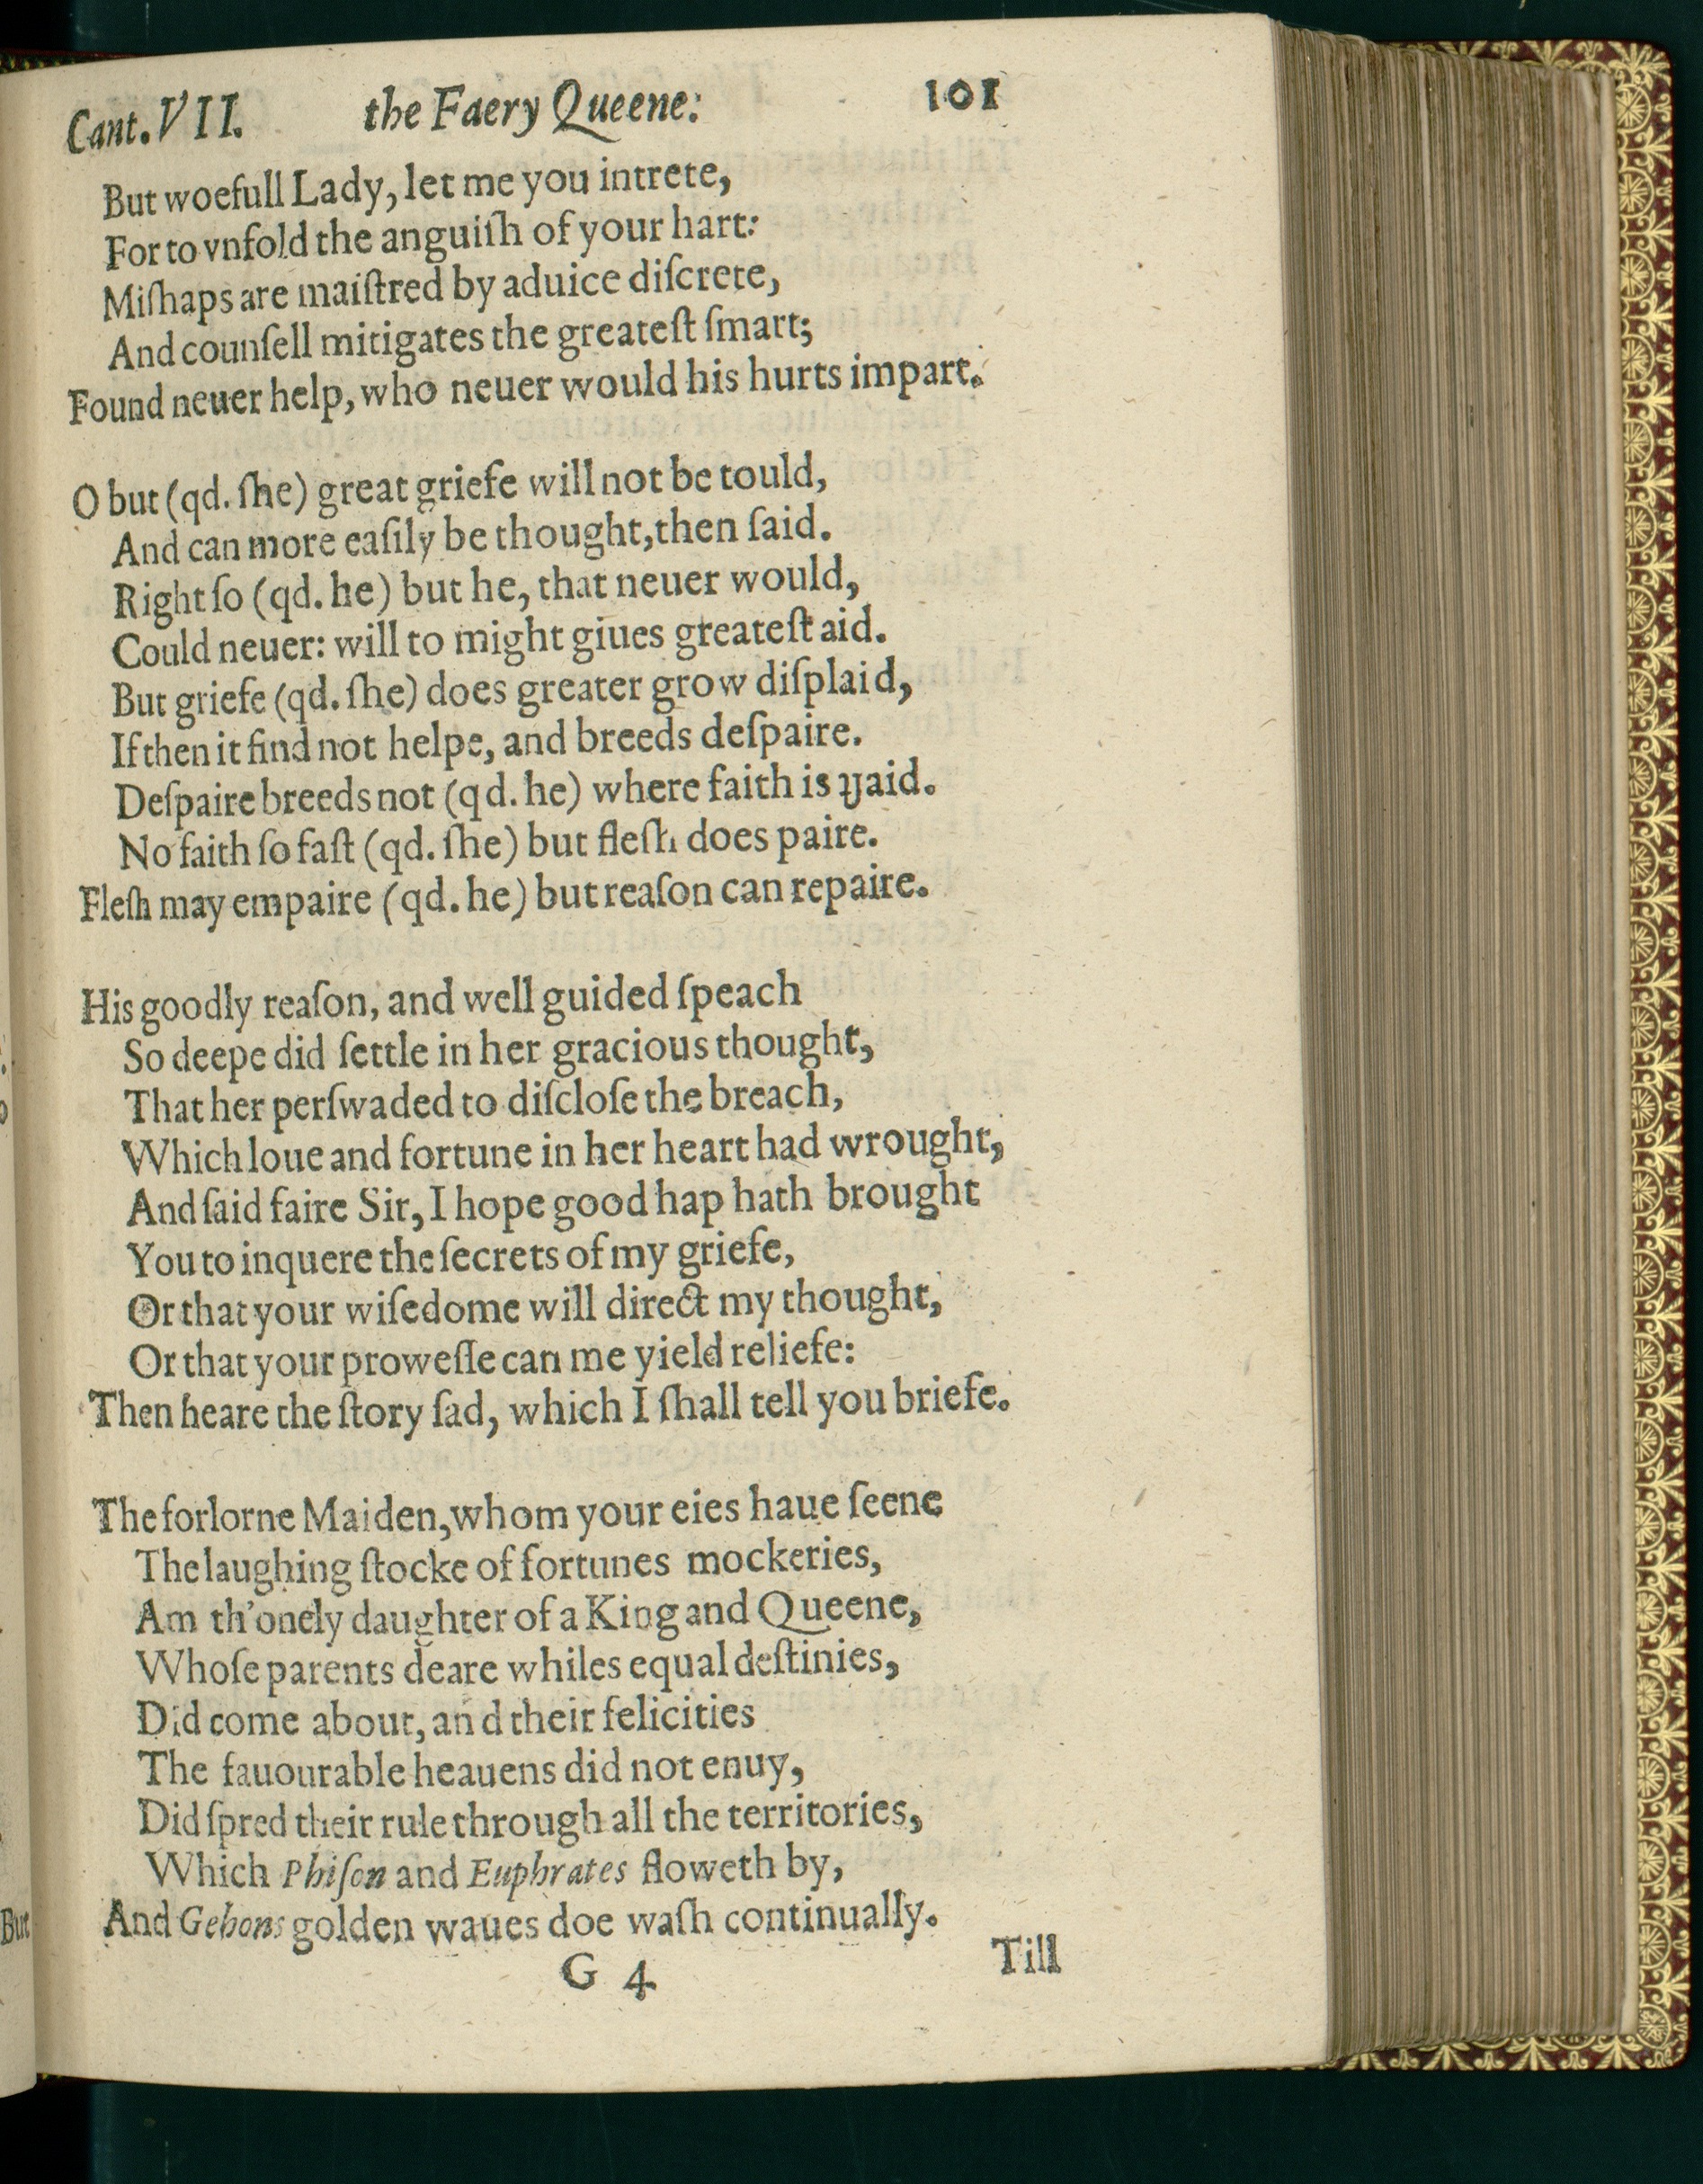 Cant. VII. the Faery Queene: 101
But woefull Lady, let me you intrete,
For to vnfold the anguiſh of your hart:
Miſhaps are maiſtred by aduice diſcrete,
And counſell mitigates the greateſt ſmart;
Found neuer help, who neuer would his hurts impart.
O but (qd. ſhe) great griefe will not be tould,
And can more eaſily be thought, then ſaid.
Right ſo (qd. he) but he, that neuer would,
Could neuer: will to might giues greateſt aid.
But griefe (qd. ſhe) does greater grow diſplaid,
If then it find not helpe, and breeds deſpaire.
Deſpaire breeds not (qd. he) where faith is ſtaid.
No faith ſo faſt (qd. ſhe) but fleſh does paire.
Fleſh may empaire (qd. he) but reaſon can repaire.
His goodly reaſon, and well guided ſpeach
So deepe did ſettle in her gracious thought,
That her perſwaded to diſcloſe the breach,
Which loue and fortune in her heart had wrought,
And ſaid faire Sir, I hope good hap hath brought
You to inquere the ſecrets of my griefe,
Or that your wiſedome will direct my thought,
Or that your proweſſe can me yield reliefe:
Then heare the ſtory ſad, which I ſhall tell you briefe.
The forlorne Maiden, whom your eies haue ſeene
The laughing ſtocke of fortunes mockeries,
Am th'onely daughter of a King and Queene,
Whoſe parents deare whiles equal deſtinies,
Did come about, and their felicities
The fauourable heauens did not enuy,
Did ſpred their rule through all the territories,
Which Phiſon and Euphrates floweth by,
And Gehons golden waues doe waſh continually.
G 4
Till
But